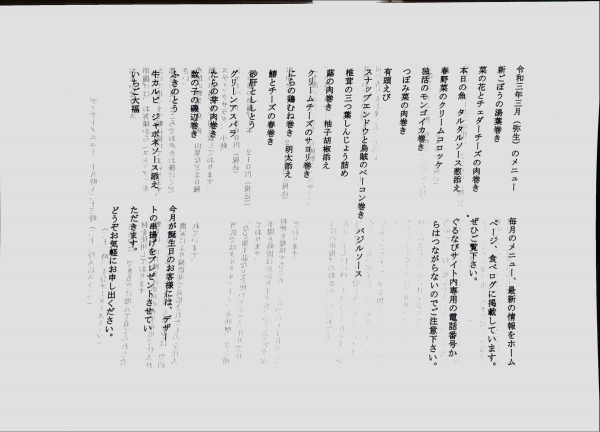 令和三年三月（弥生）のメニュー
新ごぼうの湯葉巻き
菜の花とチェダーチーズの肉巻き
本日の魚　タルタルソース葱添え
春野菜のクリームコロッケ
独活のモンゴイカ巻き
つぼみ菜の肉巻き
有頭えび
スナップエンドウと烏賊のベーコン巻き　バジルソース
椎茸の三つ葉しんじょう詰め
蕗の肉巻き　柚子胡椒添え
クリームチーズのサヨリ巻き
にらの鶏むね巻き　明太添え
鰆とチーズの春巻き
砂肝とししとう
グリーンアスパラ
数の子の磯辺巻き
たらの芽の肉巻き
ふきのとう
牛カルビ　ジャポネソース添え
いちご大福
毎月のメニュー、最新の情報をホーム
ページ、食べログに掲載しています。
ぜひご覧下さい。
ぐるなびサイト内専用の電話番号か
らはつながらないのでご注意下さい。
今月が誕生日のお客様には、デザー
トの串揚げをプレゼントさせてい
ただきます。
どうぞお気軽にお申し出ください。